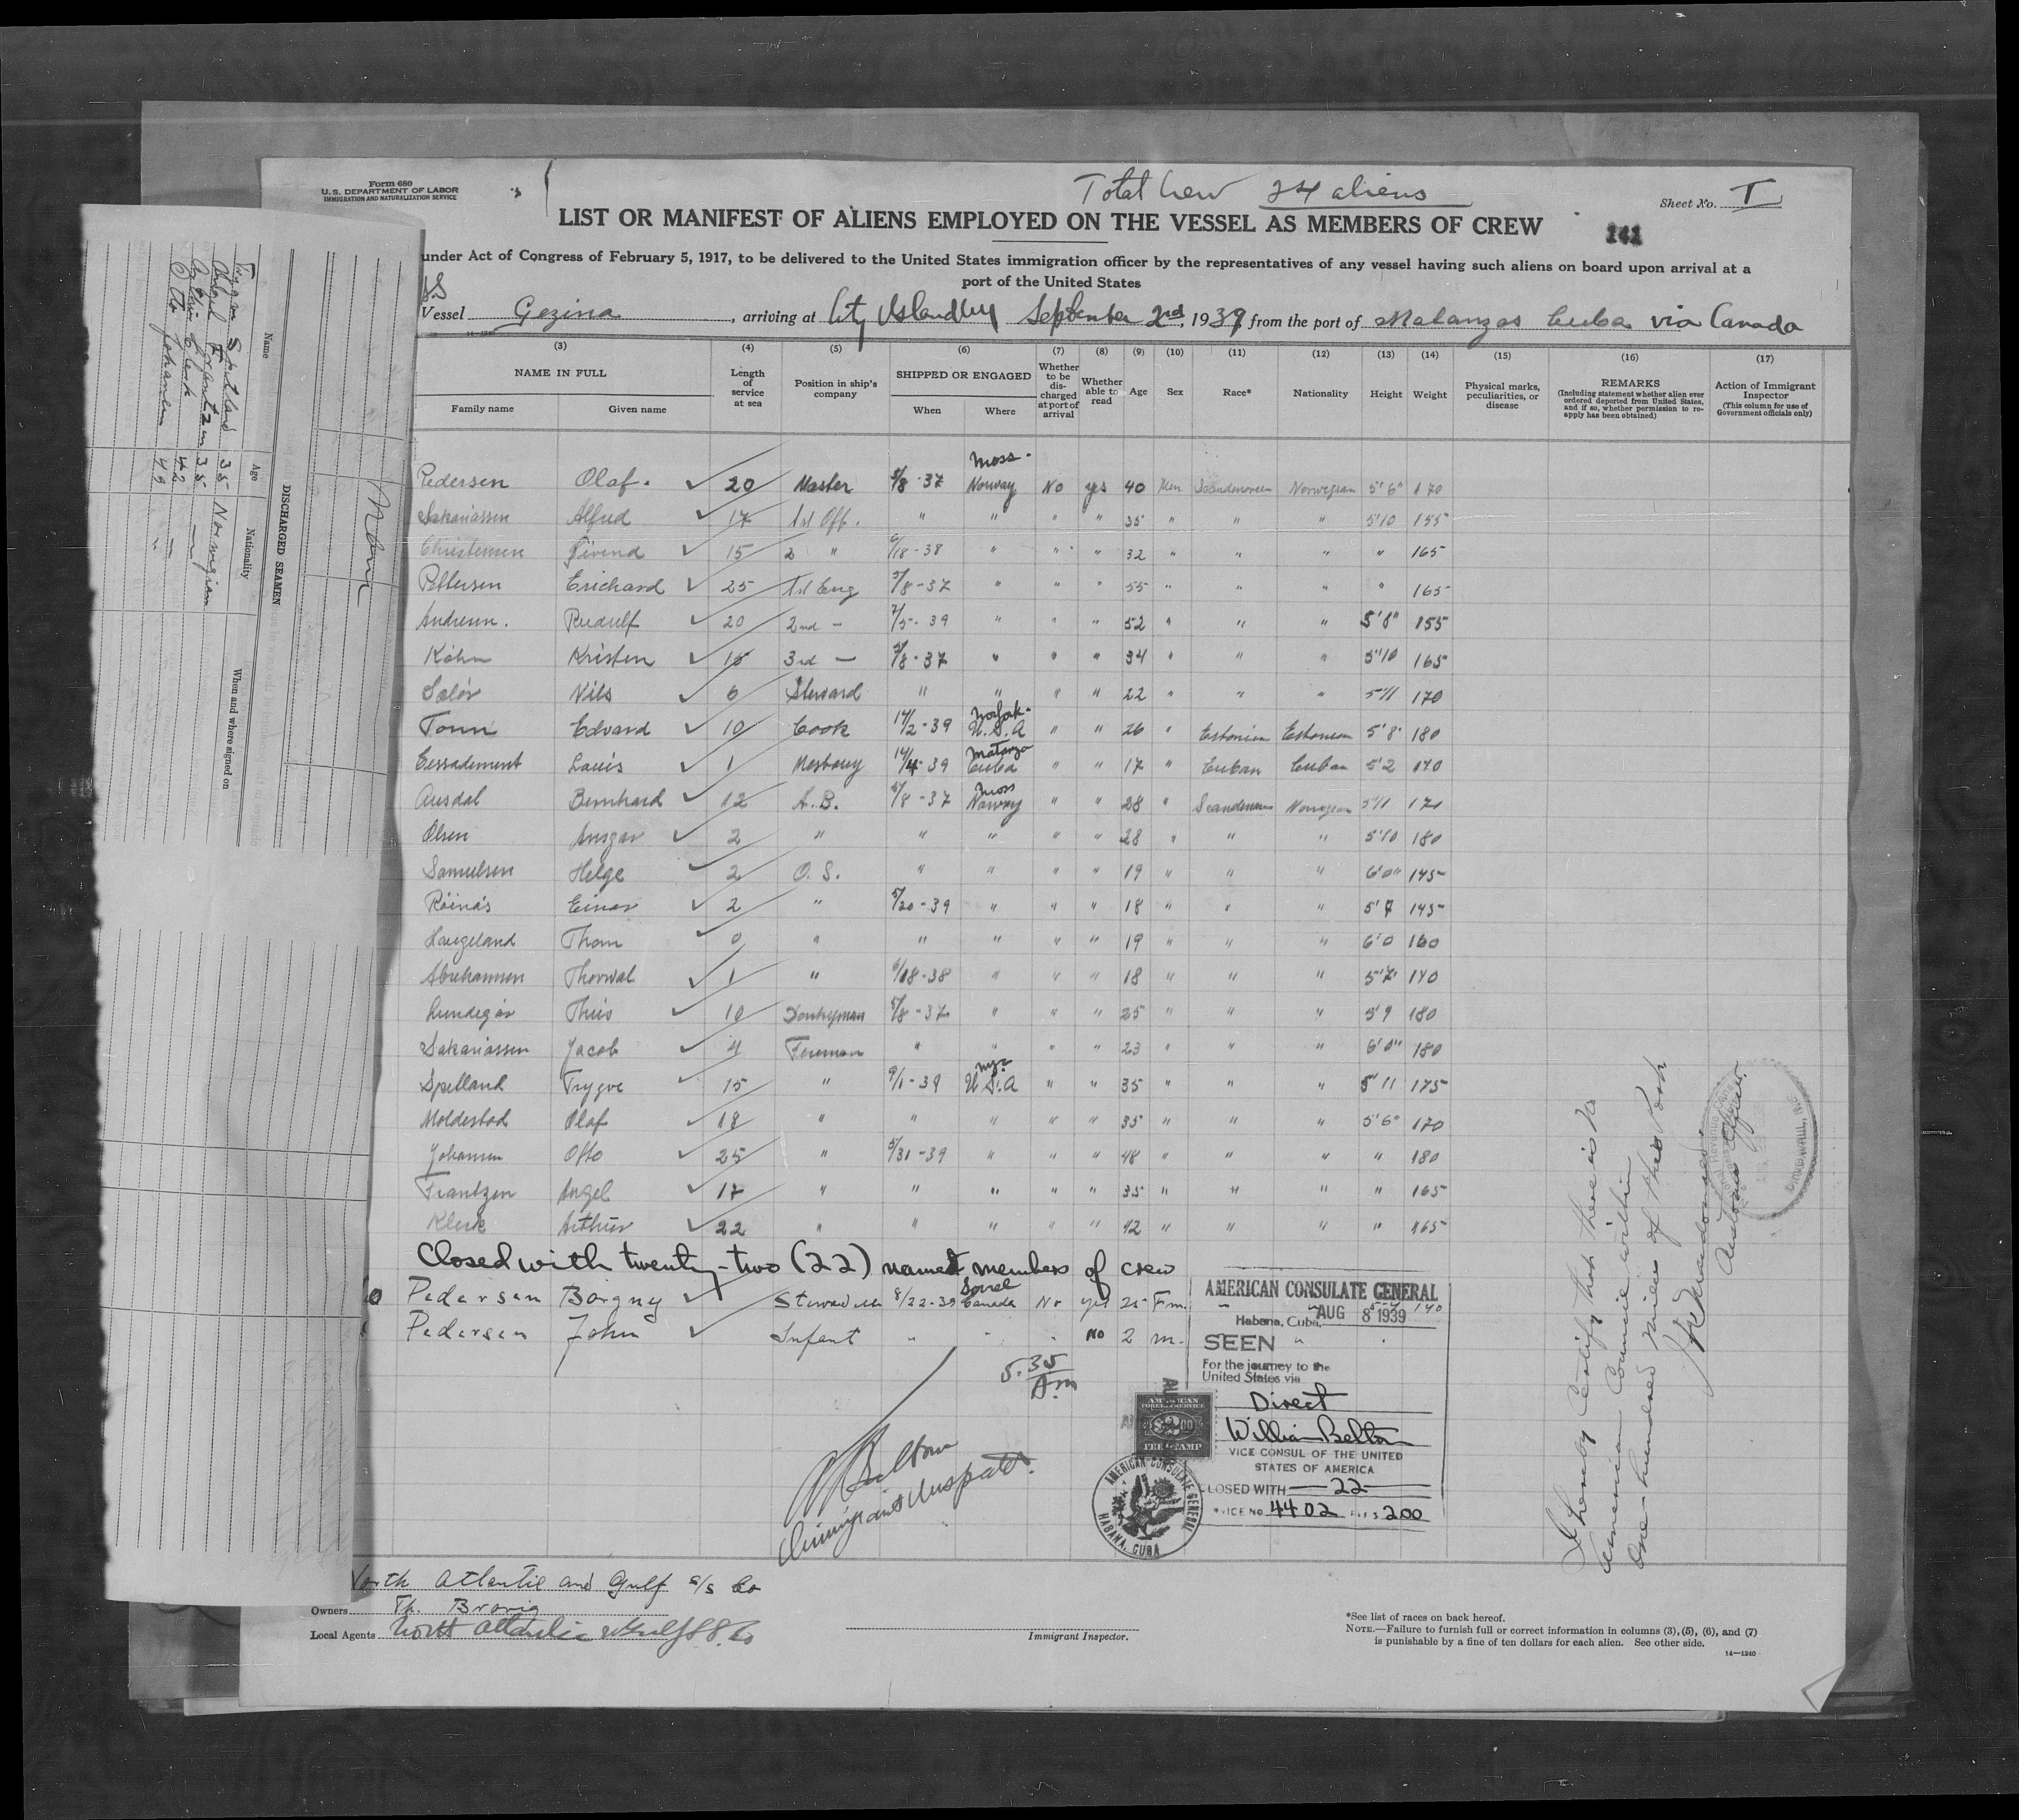 Form 680
U.S. DEPARTMENT OF LABOR
IMMIGRATION AND NATURALIZATION SERVICE
Total Crew 24 aliens
Sheet No. I
LIST OR MANIFEST OF ALIENS EMPLOYED ON THE VESSEL AS MEMBERS OF CREW
141
under Act of Congress of February 5, 1917, to be delivered to the United States immigration officer by the representatives of any vessel having such aliens on board upon arrival at a
port of the United States
SS
Vessel Gezina, arriving at City Island NY September 2nd, 1939, from the port of Matanzas Cuba via Canada
(3) (4) (5) (6) (7) (8) (9) (10) (11) (12) (13) (14) (15) (16) (17)
NAME IN FULL
Family name Given name
Length of service at sea
Position in ship's company
SHIPPED OR ENGAGED
When Where
Whether to be discharged at port of arrival
Whether able to read
Age
Sex
Race*
Nationality
Height
Weight
Physical marks, peculiarities, or disease
REMARKS
(Including statement whether alien ever ordered deported from United States, and if so, whether permission to reapply has been obtained)
Action of Immigrant Inspector
(This column for use of Government officials only)
Moss -
Pedersen Olaf. 20 Master 5/8-37 Norway No yes 40 Men Norwegian 5'6" 170
Sakariassen Alfred 17 1st Off. " " " " 35 " " " 5'10 155
Christensen 15 2 " 6/18-38 " " " 32 " " " " 165
Pettersen Erichard 25 1st Eng 5/8-37 " " " 55 " " " " 165
Andresen. Rudulf 20 2nd - 7/5-39 " " " 52 " " " 5'8" 155
Kristen 3rd - 5/8-37 " " " 34 " " " 5'10 165
Nils 6 Steward " " " " 22 " " " 5'11 170
Norfolk-
Tonn Edvard 10 Cook 14/2-39 U.S.A " " 26 " Estonian Estonian 5'8" 180
Matanza
Louis 1 Messboy 14/4-39 Cuba " " 17 " Cuban Cuban 5'2
Moss
Ausdal Bernhard 12 A.B. 5/8-37 Norway " " 28 " Norwegian 5'11
Olsen Ansgar 2 " " " " " 28 " " " 5'10 180
Samuelsen Helge 2 O.S. " " " " 19 " " " 6'0" 145
Einar 2 " 5/20-39 " " " 18 " " " 5'7 145
Haugeland Thom 0 " " " " " 19 " " " 6'0 160
Abrahamsen Thorwal 1 " 6/18-38 " " " 18 " " " 5'7" 140
Thiis 10 Donkeyman 5/8-37 " " " 25 " " " 5'9 180
Sakariassen Jacob 4 Fireman " " " " 23 " " " 6'0" 180
N.Y.
Spelland Trygve 15 " 9/1-39 U.S.A " " 35 " " " 5'11 175
Moldestad Olaf 18 " " " " " 35 " " " 5'6" 170
Johansen Otto 25 " 5/31-39 " " " 48 " " " " 180
Frantzen Angel 17 " " " " " 35 " " " " 165
Klerk Arthur 22 " " " " " 42 " " " " 165
Closed with twenty-two (22) named members of crew
Sorel
Pedersen Borgny Stewardess 8/22-39 Canada No yes 25 Fm. 140
Pedersen John Infant " " " No 2 m. "
5.35 A.m
Immigrant Inspector.
AMERICAN CONSULATE GENERAL
Habana, Cuba, AUG 8 1939
SEEN
For the journey to the
United States via
Direct
William Belton
VICE CONSUL OF THE UNITED
STATES OF AMERICA
CLOSED WITH 22
SERVICE NO. 4402 FEE $ 2.00
AMERICAN FOREIGN SERVICE
$2.00
FEE STAMP
AMERICAN CONSULATE GENERAL
HABANA, CUBA
I hereby Certify that there is no
American Council within
One-hundred miles of this Port
Customs Officer.
North Atlantic and Gulf S/S Co
Owners Th. Brovig
Local Agents North Atlantic & Gulf SS. Co
Immigrant Inspector.
*See list of races on back hereof.
NOTE.—Failure to furnish full or correct information in columns (3), (5), (6), and (7)
is punishable by a fine of ten dollars for each alien. See other side.
14—1240
DISCHARGED SEAMEN
Name Age Nationality When and where signed on
35 Norwegian
35 —
42 —
Otto Johansen 49 "
None